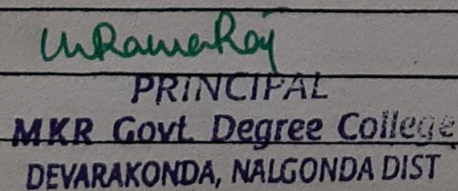 PRINCIPAL
MKR Govt. Degree College
DEVARAKONDA, NALGONDA DIST